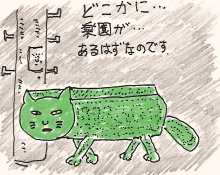 どこかに…
楽園が…
あるはずなのです.